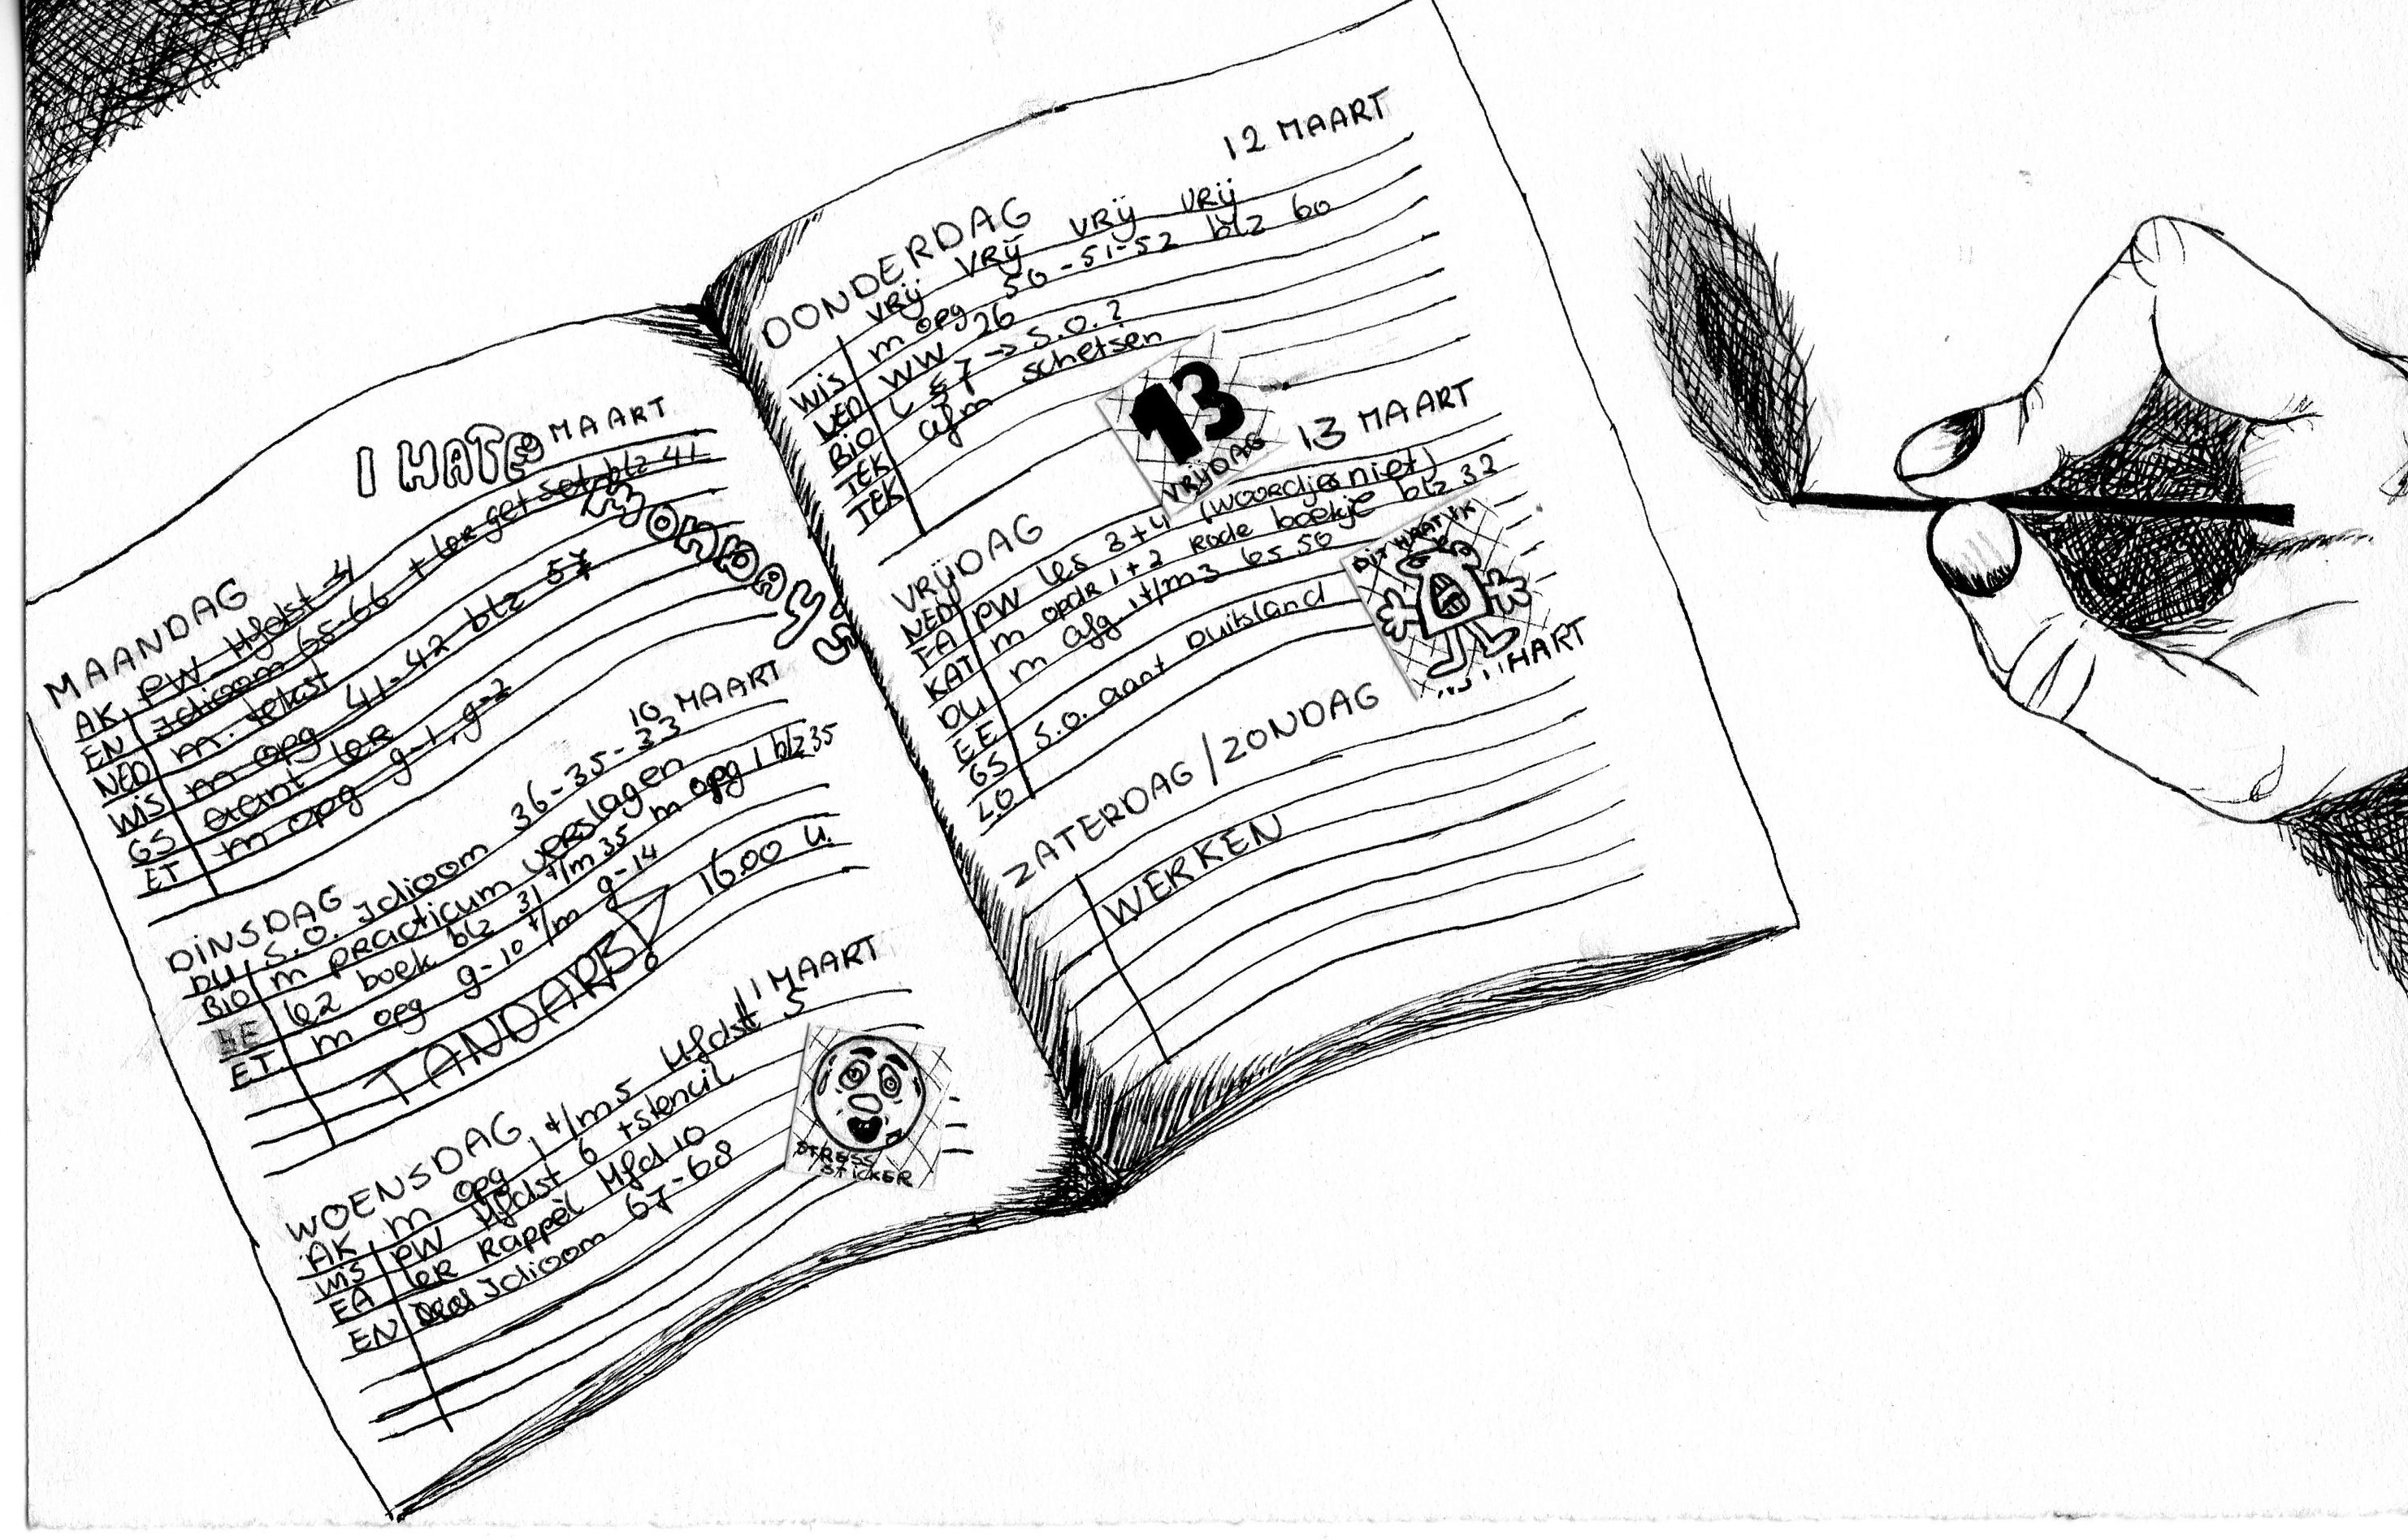 I HATE MAART
MONDAYS
MAANDAG
AK PW Hfdst 4
EN Idioom 65-66 + ler get set blz 41
NED m. tekst
WIS m opg 41-42 blz 57
GS aant ler
ET m opg g-1, g-2
10 MAART
DINSDAG
DU S.O. Idioom 36-35-33
BIO m practicum verslagen
lez boek blz 31 t/m 35 m opg 1 blz 35
ET m opg g-10 t/m g-14
TANDARTS! 16.00 u.
11 MAART
WOENSDAG
AK m opg 1 t/m 5 Hfdst 5
WIS PW Hfdst 6 + stencil
FA ler Rappel Hfd 10
EN Idioom 67-68
STRESS
STICKER
12 MAART
DONDERDAG
vrij vrij vrij vrij
WIS m opg 50-51-52 blz 60
NED WW 26
BIO L § 7 → S.O.?
TEK afm schetsen
TEK
13
VRIJDAG
13 MAART
VRIJDAG
NED PW les 3+4 (woordjes niet)
FA m opdr 1+2 Rode boekje blz 32
KAT m afg 1 t/m 3 les 50
DU
EE
GS S.O. aant Duitsland
LO
DIT HAAT IK
HART
ZATERDAG / ZONDAG
WERKEN